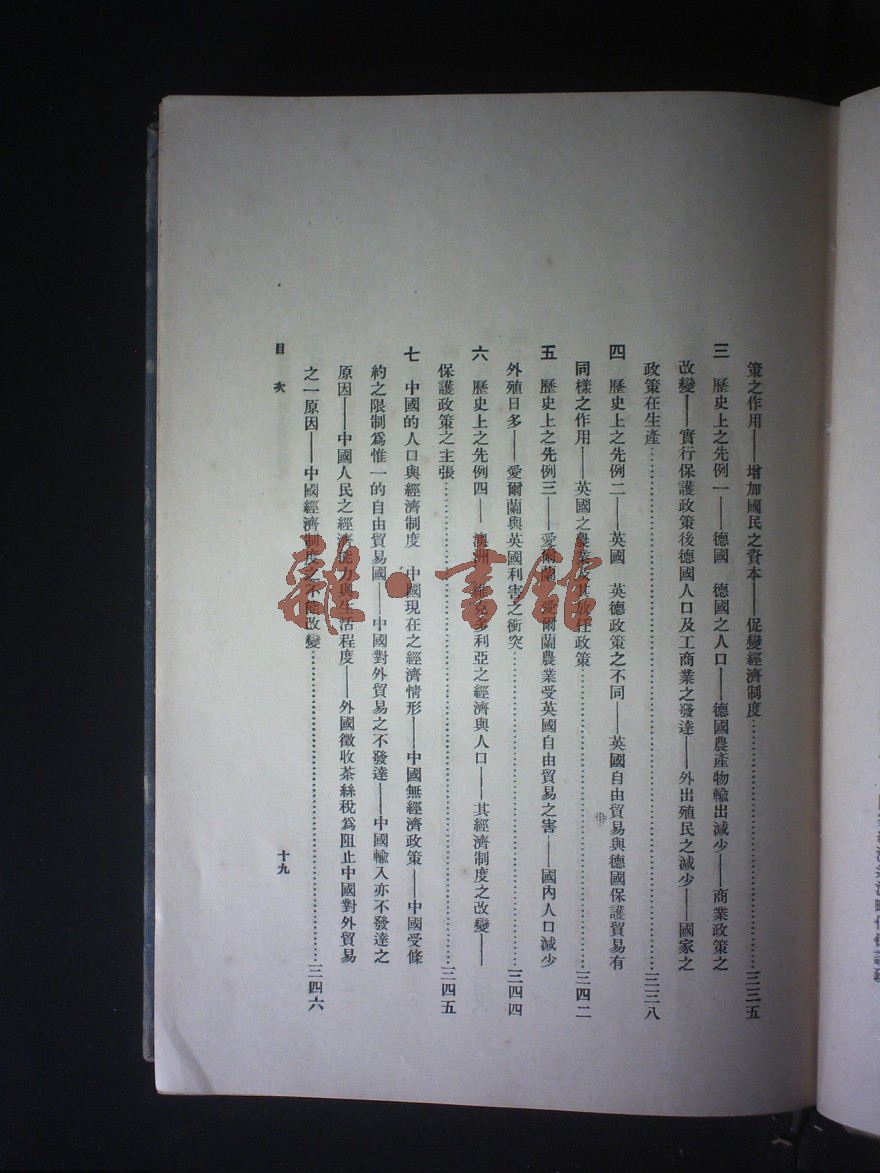 策之作用——增加國民之資本——促變經濟制度……三三五
三　歷史上之先例一——德國　德國之人口——德國農產物輸出減少——商業政策之
改變——實行保護政策後德國人口及工商業之發達——外出殖民之減少——國家之
政策在生產……三三八
四　歷史上之先例二——英國　英德政策之不同——英國自由貿易與德國保護貿易有
同樣之作用——英國之農業及其放任政策……三四二
五　歷史上之先例三——愛爾蘭　愛爾蘭農業受英國自由貿易之害——國內人口減少
外殖日多——愛爾蘭與英國利害之衝突……三四四
六　歷史上之先例四——澳洲　維克多利亞之經濟與人口——其經濟制度之改變——
保護政策之主張……三四五
七　中國的人口與經濟制度　中國現在之經濟情形——中國無經濟政策——中國受條
約之限制爲惟一的自由貿易國——中國對外貿易之不發達——中國輸入亦不發達之
原因——中國人民之經濟能力與生活程度——外國徵收茶絲稅爲阻止中國對外貿易
之一原因——中國經濟制度之不能改變……三四六
目次
十九
雜·書館